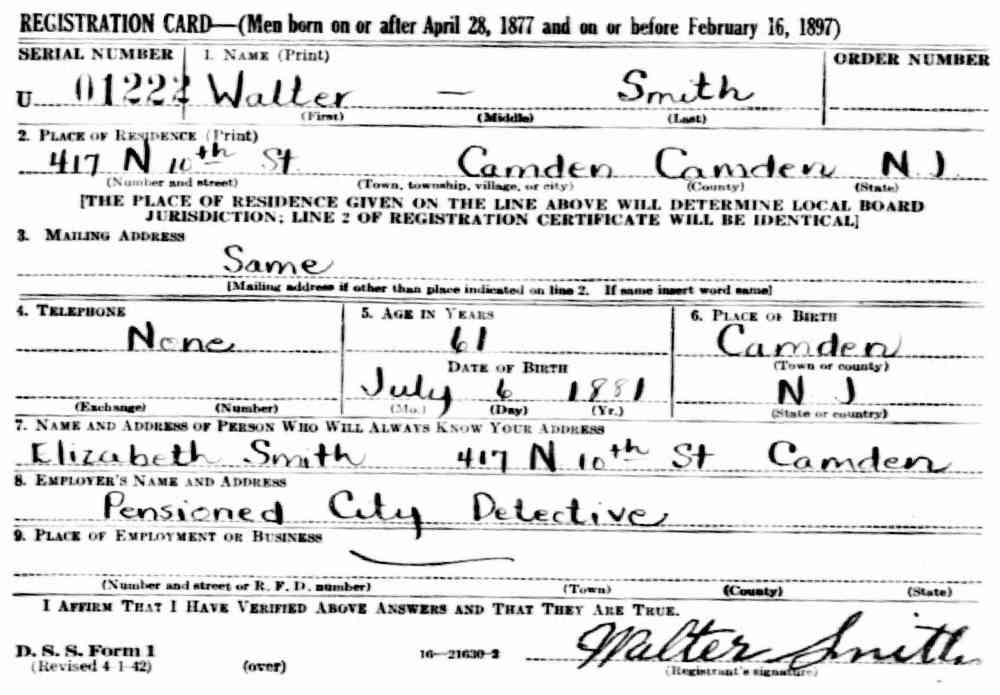 REGISTRATION CARD—(Men born on or after April 28, 1877 and on or before February 16, 1897)
SERIAL NUMBER 1. NAME (Print) ORDER NUMBER
U 01222 Walter — Smith
(First) (Middle) (Last)
2. PLACE OF RESIDENCE (Print)
417 N 10th St. Camden Camden N.J.
(Number and street) (Town, township, village, or city) (County) (State)
[THE PLACE OF RESIDENCE GIVEN ON THE LINE ABOVE WILL DETERMINE LOCAL BOARD
JURISDICTION; LINE 2 OF REGISTRATION CERTIFICATE WILL BE IDENTICAL]
3. MAILING ADDRESS
Same
[Mailing address if other than place indicated on line 2. If same insert word same]
4. TELEPHONE 5. AGE IN YEARS 6. PLACE OF BIRTH
None 61 Camden
DATE OF BIRTH (Town or county)
July 6 1881 N J
(Exchange) (Number) (Mo.) (Day) (Yr.) (State or country)
7. NAME AND ADDRESS OF PERSON WHO WILL ALWAYS KNOW YOUR ADDRESS
Elizabeth Smith 417 N 10th St Camden
8. EMPLOYER'S NAME AND ADDRESS
Pensioned City Detective
9. PLACE OF EMPLOYMENT OR BUSINESS
(Number and street or R. F. D. number) (Town) (County) (State)
I AFFIRM THAT I HAVE VERIFIED ABOVE ANSWERS AND THAT THEY ARE TRUE.
D. S. S. Form 1
(Revised 4-1-42) (over) 16—21630-2 Walter Smith
(Registrant's signature)